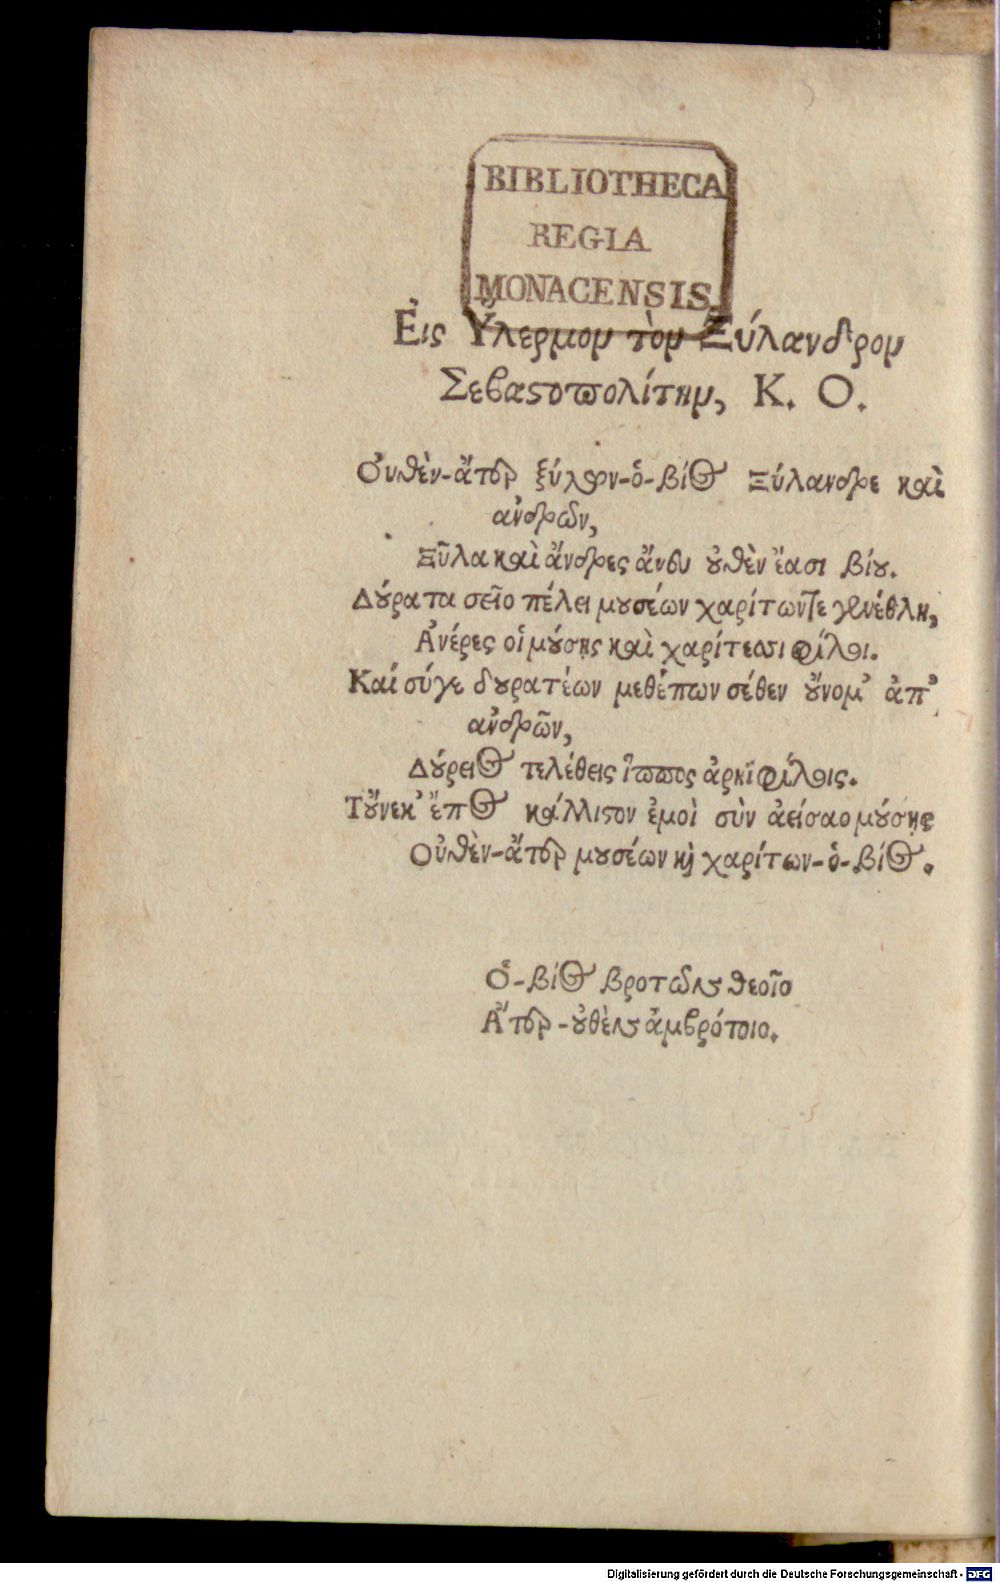 BIBLIOTHECA
REGIA
MONACENSIS.
Εἰς Ὕλερμον τὸν Ξύλανδρον
Σεβαστοπολίτην, Κ. Ο.
Οὐθὲν-ἄτερ ξύλων-ὁ-βίος Ξύλανδρε καὶ
ἀνδρῶν,
Ξῦλα καὶ ἄνδρες ἄνευ οὐθὲν ἔασι βίου.
Δούρατα σεῖο πέλει μουσέων χαρίτωντε γενέθλη,
Ἀνέρες οἱ μούσῃς καὶ χαρίτεσσι φίλοι.
Καί σύγε δουρατέων μεθέπων σέθεν οὔνομ' ἀπ'
ἀνδρῶν,
Δούρειος τελέθεις ἵππος ἀρηϊφίλοις.
Τοὔνεκ' ἔπος κάλλιστον ἐμοὶ σὺν ἀείσαο μούσῃς
Οὐθὲν-ἄτερ μουσέων καὶ χαρίτων-ὁ-βίος.
Ὁ-βίος βροτῶδες θεοῖο
Ἄτερ-οὐθὲν ἀμβρότοιο.
Digitalisierung gefördert durch die Deutsche Forschungsgemeinschaft - DFG